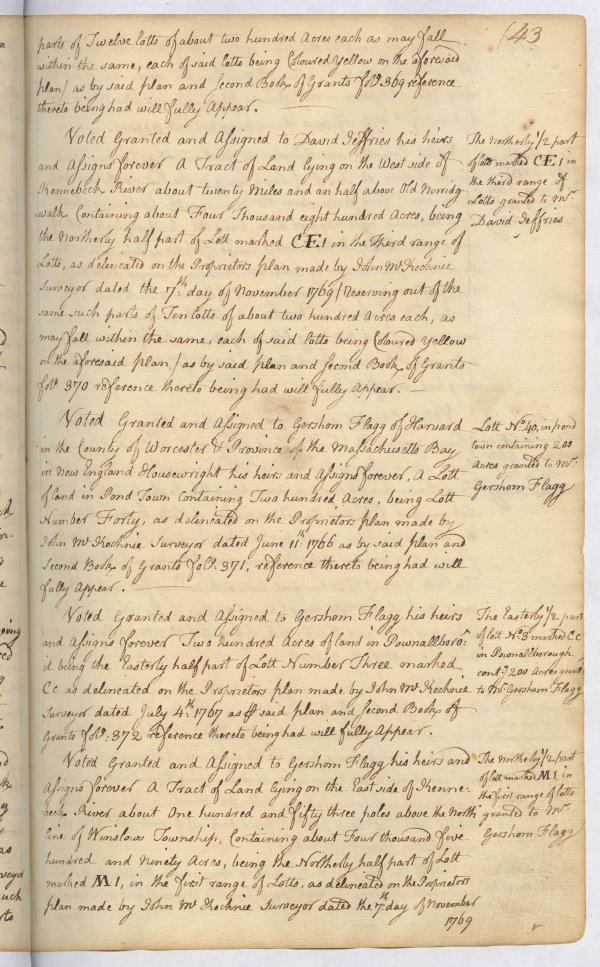 (43
parts of Twelve Lotts of about two hundred Acres each as may fall
within the same, each of said Lotts being Coloured Yellow on the aforesaid
plan/ as by said plan and Second Book of Grants folo: 369 reference
thereto being had will fully Appear.
Voted Granted and Assigned to David Jeffries his heirs
and Assigns forever A Tract of Land lying on the West side of
Kennebeck River about twenty Miles and an half above Old Norridg-
walk Containing about Four Thousand eight hundred Acres, being
the Northerly half part of Lott marked CE1 in the Third range of
Lotts, as delineated on the Proprietors plan made by John McKechnie
Surveyor dated the 7th. day of November 1769/Reserving out of the
same such parts of Ten Lotts of about two hundred Acres each, as
may fall within the same, each of said Lotts being Coloured Yellow
on the aforesaid plan/ as by said plan and Second Book of Grants
folo: 370 reference thereto being had will fully Appear.
The Northerly 1/2 part
of lott marked CE1 in
the third range of
Lotts granted to Mr.
David Jeffries
Voted Granted and Assigned to Gershom Flagg of Harvard
in the County of Worcester & Province of the Massachusetts Bay
in New England Housewright his heirs and Assigns forever, A Lott
of Land in Pond Town Containing Two hundred Acres, being Lott
Number Forty, as delineated on the Proprietors plan made by
John McKechnie Surveyor dated June 11th. 1766 as by said plan and
Second Book of Grants folo: 371, reference thereto being had will
fully Appear.
Lott No. 40, in pond
town containing 200
Acres granted to Mr.
Gershom Flagg
Voted Granted and Assigned to Gershom Flagg his heirs
and Assigns forever Two hundred Acres of land in Pownallboro:
it being the Easterly half part of Lott Number Three marked
Cc as delineated on the Proprietors plan made by John McKechnie
Surveyor dated July 4th. 1767 as said plan and Second Book of
Grants folo: 372 reference thereto being had will fully Appear.
The Easterly 1/2 part
of lott No. 3 marked Cc
in Pownallborough
contg. 200 Acres
to Mr. Gershom Flagg
Voted Granted and Assigned to Gershom Flagg his heirs and
Assigns forever A Tract of Land lying on the East side of Kenne-
beck River about One hundred and fifty three poles above the North
line of Winslows Township, Containing about Four thousand five
hundred and Ninety Acres, being the Northerly half part of Lott
marked M1, in the first range of Lotts, as delineated on the Proprietors
plan made by John McKechnie Surveyor dated the 7th. day of November
1769
The Northerly 1/2 part
of lott marked M1, in
the first range of lotts
granted to Mr.
Gershom Flagg